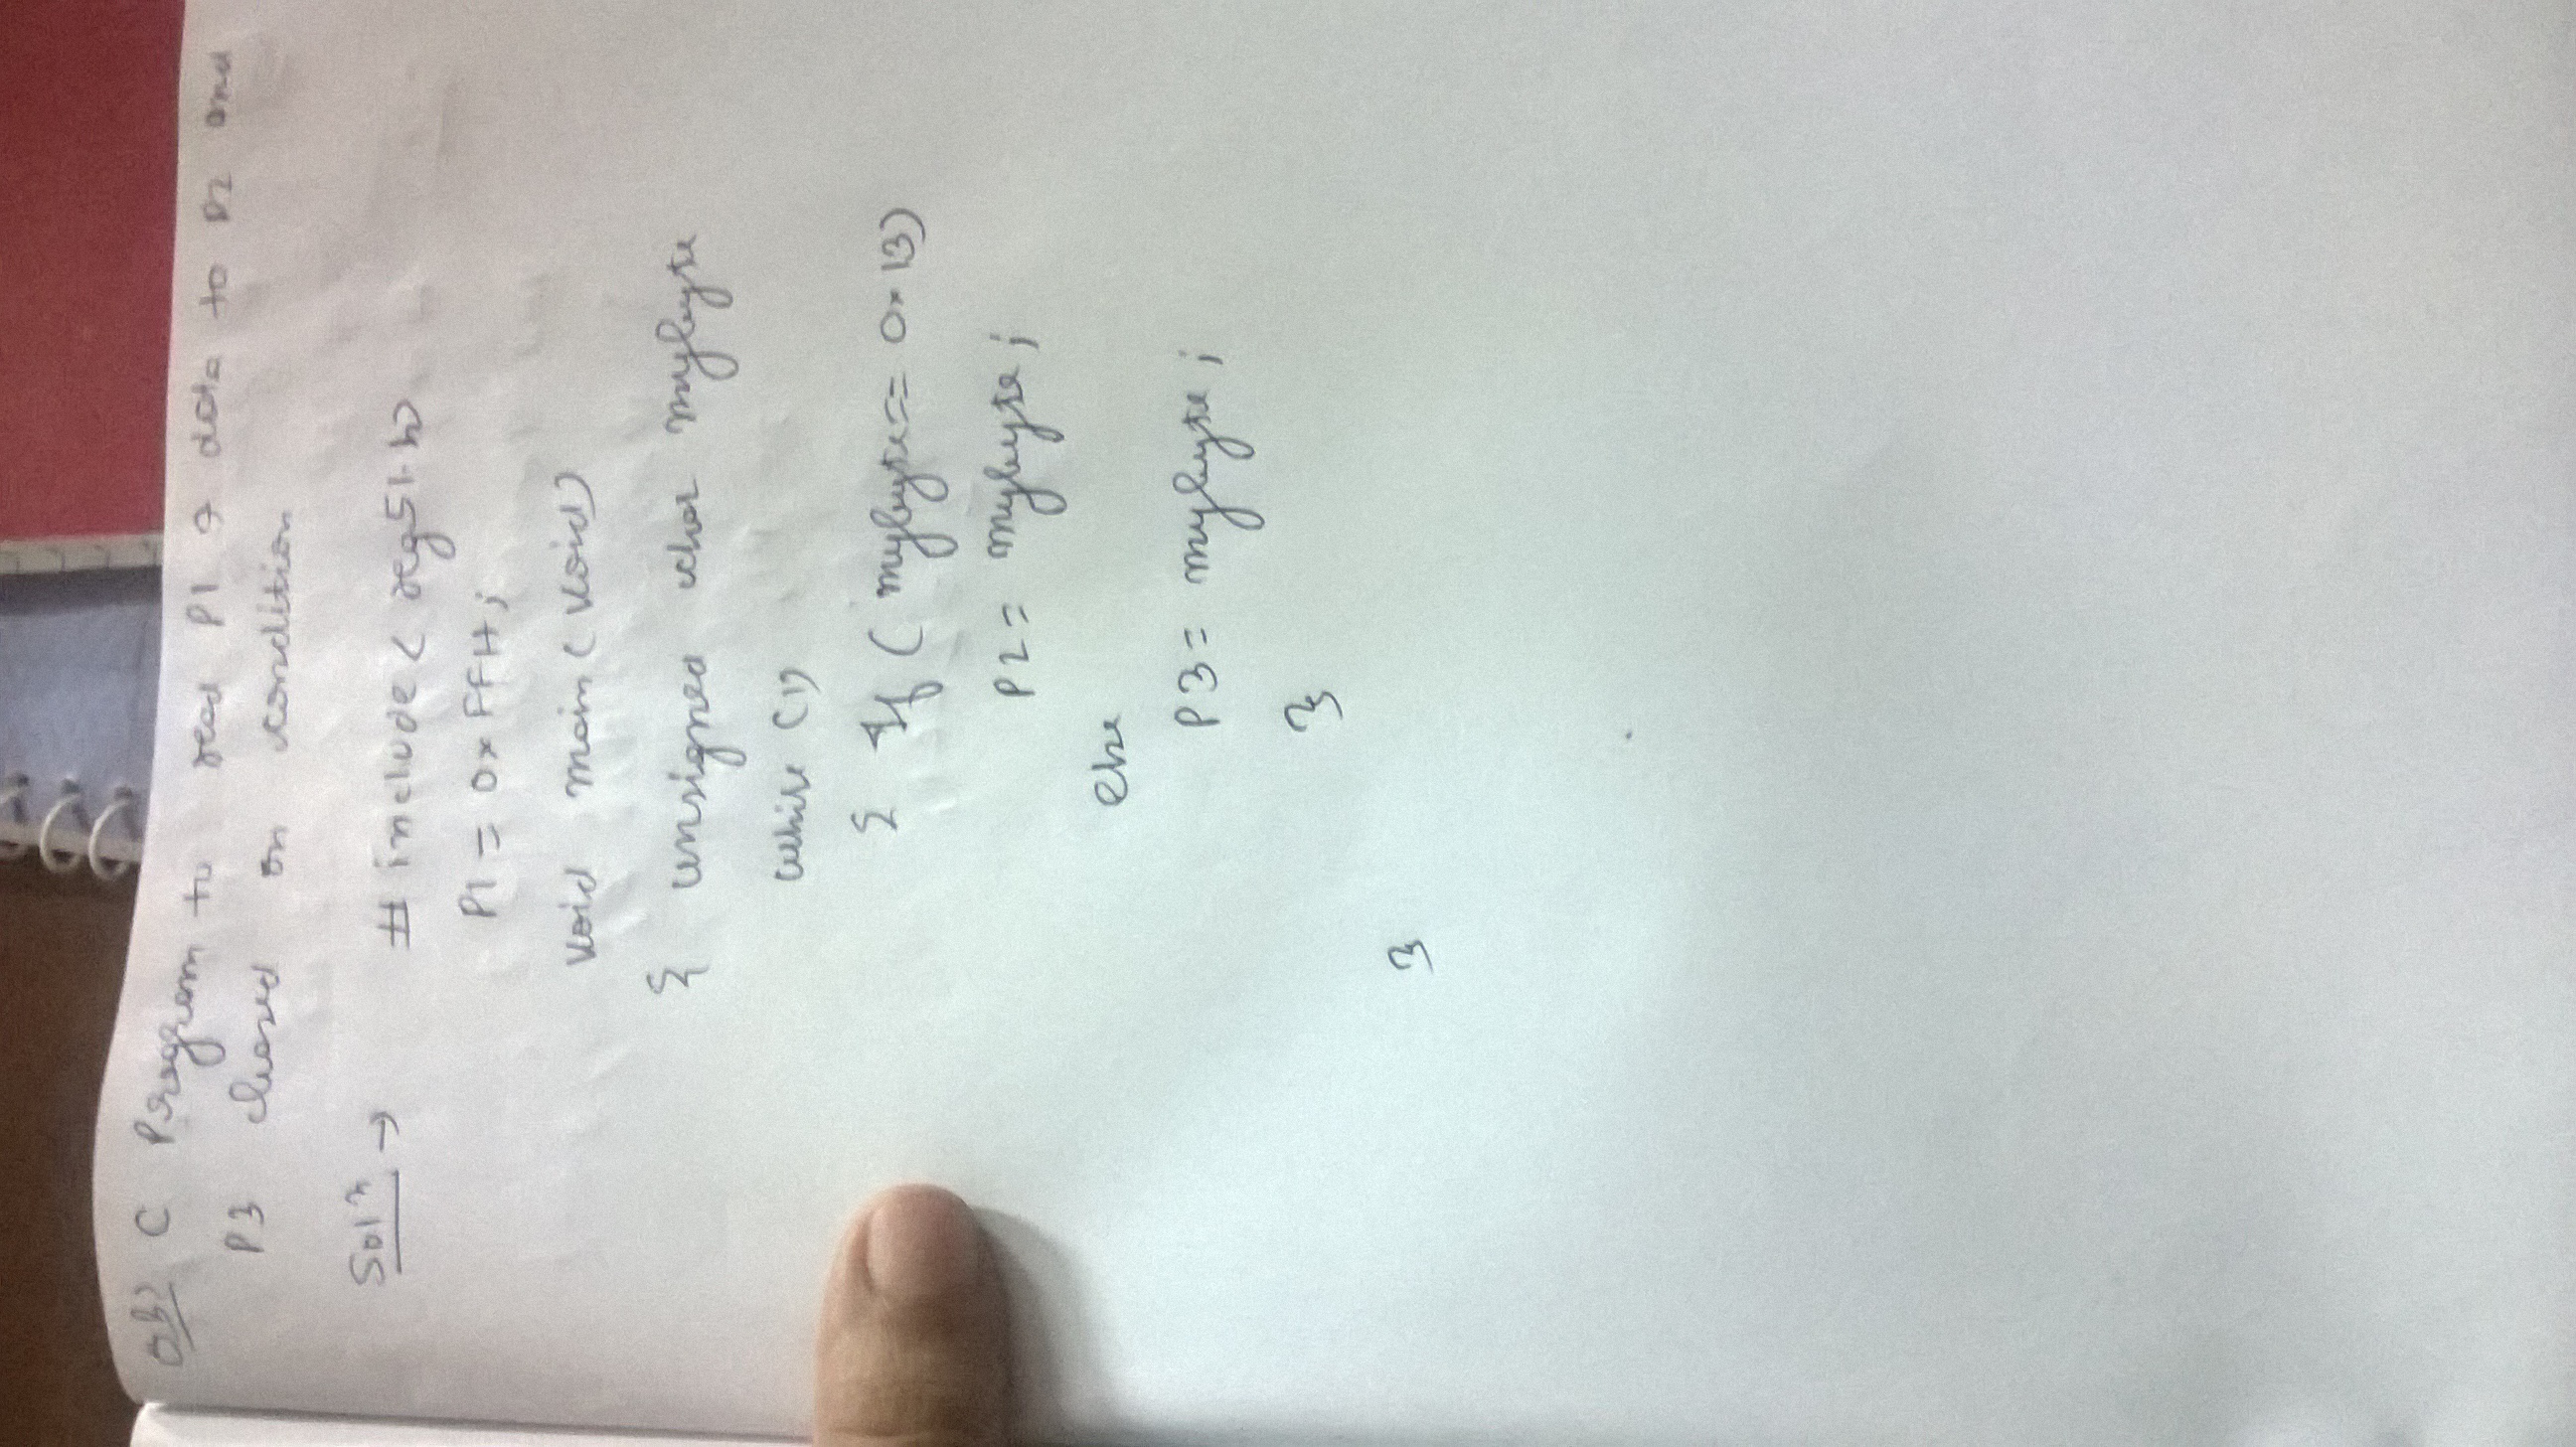 Q6) C Program to read P1 & data to P2 and
P3 based on condition
Solⁿ → # include < reg51.h>
P1 = 0xFFH;
void main (void)
{ unsigned char mybyte
while (1)
{ If ( mybyte == 0x13)
P2 = mybyte;
else
P3 = mybyte;
}
}